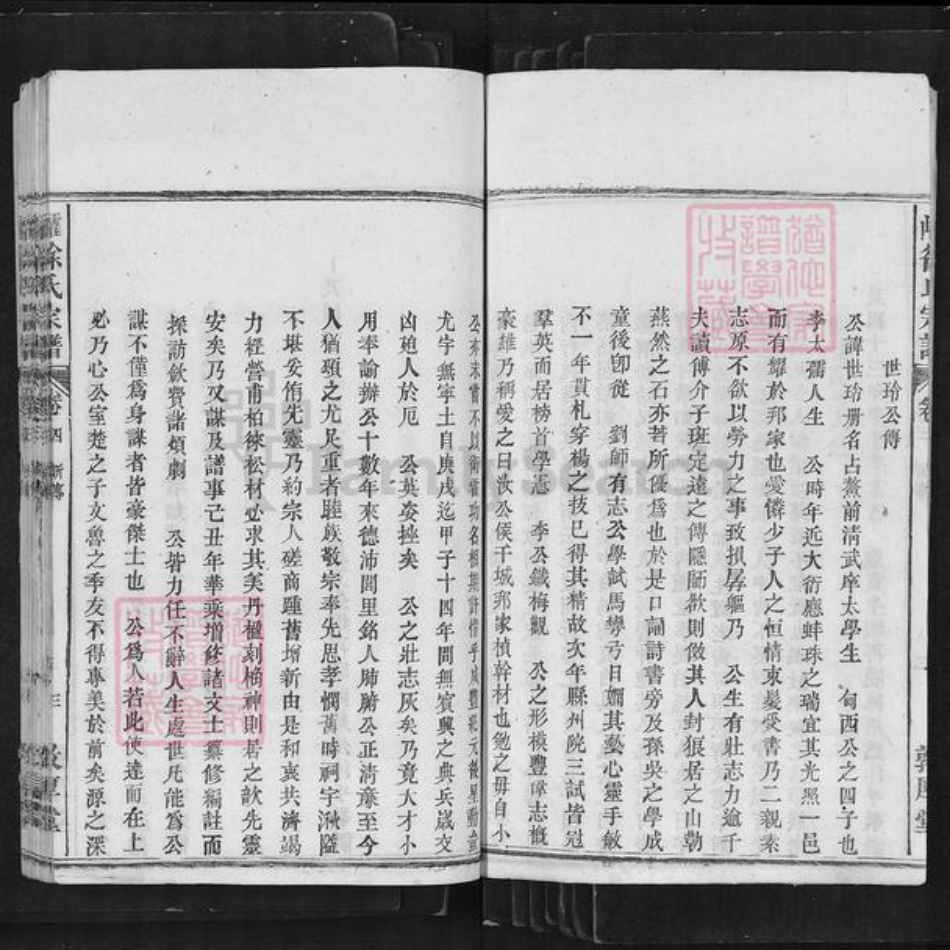 世玲公傳
公諱世玲册名占鰲前清武庠太學生 甸西公之四子也
李太孺人生 公時年近大衍應蚌珠之瑞宜其光照一邑
而有耀於邦家也愛憐少子人之恒情束髮受書乃二親素
志原不欲以勞力之事致拟孱軀乃 公生有壯志力逾千
夫讀傅介子班定遠之傳隱隱欲則傚其人封狼居之山勒
燕然之石亦若所優爲也於是口誦詩書旁及孫吳之學成
童後卽從 劉師有志公學試馬彎弓日嫻其藝心靈手敏
不一年貫札穿楊之技已得其精故次年縣州院三試皆冠
羣英而居榜首學憲 李公鐵梅觀 公之形模豐暐志概
豪雄乃稱愛之曰汝公侯干城邦家楨幹材也勉之毋自小
公亦未嘗不以衛霍功名相期許惜乎咸豐紀元後星動
尤宇無寧土自庚戌迄甲子十四年間無賓興之典兵歲交
凶廹人於厄 公英姿挫矣 公之壯志灰矣乃竟大才小
用奉諭辦公十數年來德沛閭里銘人肺腑公正淸廉至今
人猶頌之尤足重者睦族敬宗奉先思孝憫舊時祠宇湫隘
不堪妥侑先靈乃約宗人磋商踵舊增新由是和衷共濟竭
力經營甫柏徠松材必求其美丹楹刻桷神則居之歆先靈
安矣乃又謀及譜事己丑年華乘增修諸文士纂修編註而
採訪歛費諸煩劇 公皆力任不辭人生處世凡能爲公
謀不僅爲身謀者皆豪傑士也 公爲人若此使達而在上
必乃心公室楚之子文魯之季友不得專美於前矣源之深
徐氏宗譜 卷四 新傳 三 敦厚堂